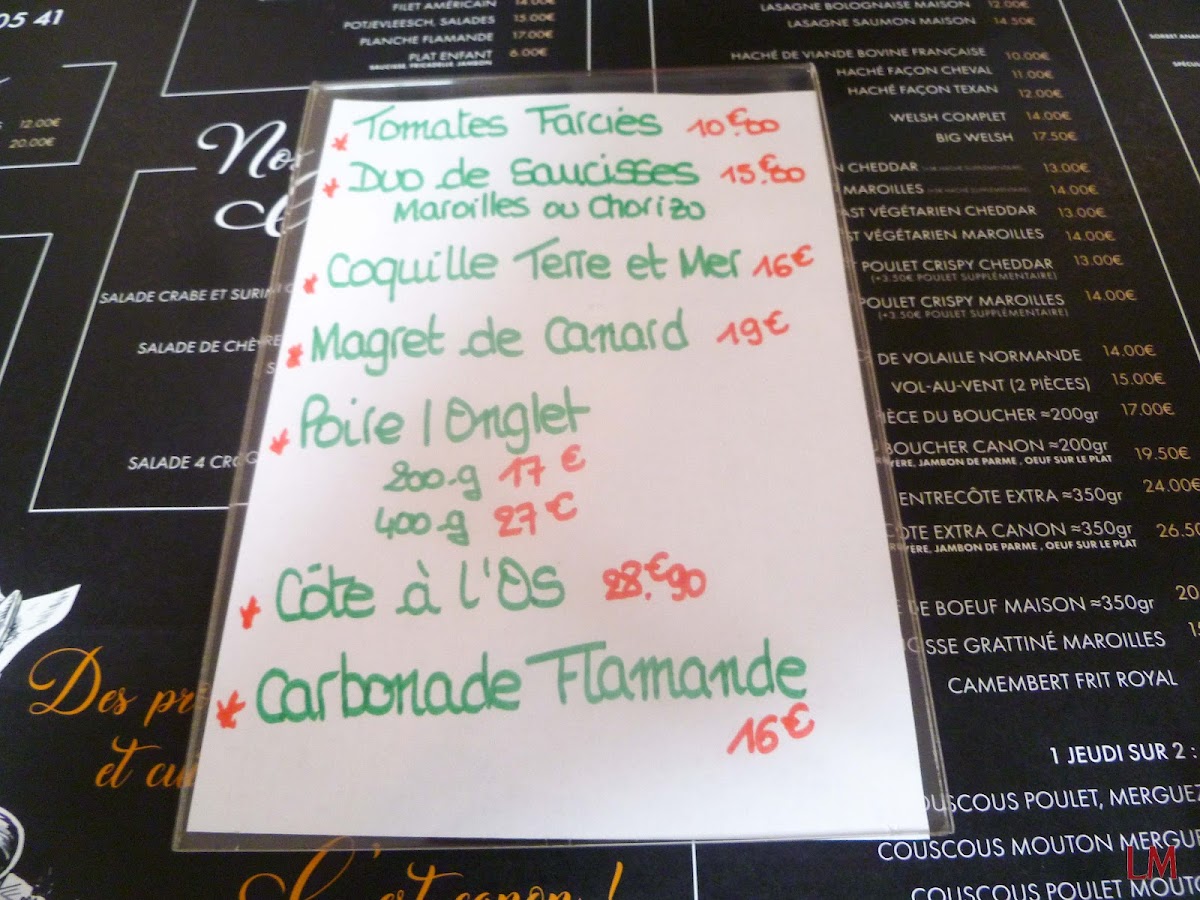 05 41
FILET AMÉRICAIN 14.00€
POTJEVLEESCH, SALADES 15.00€
PLANCHE FLAMANDE 17.00€
PLAT ENFANT 6.00€
SAUCISSE, FRICADELLE, JAMBON
12.00€
20.00€
SALADE CRABE ET SURIMI
SALADE DE CHÈVRE
SALADE 4 CRO
Des pr
et cu
C'est canon !
Tomates Farcies 10€00
Duo de Saucisses 15.€80
Maroilles ou Chorizo
Coquille Terre et Mer 16€
Magret de Canard 19€
Poire / Onglet
200g 17€
400g 27€
Côte à l'Os 28.€90
Carbonade Flamande
16€
LASAGNE BOLOGNAISE MAISON 12.00€
LASAGNE SAUMON MAISON 14.50€
HACHÉ DE VIANDE BOVINE FRANÇAISE 10.00€
HACHÉ FAÇON CHEVAL 11.00€
HACHÉ FAÇON TEXAN 12.00€
WELSH COMPLET 14.00€
BIG WELSH 17.50€
CHEDDAR 13.00€
MAROILLES 14.00€
AST VÉGÉTARIEN CHEDDAR 13.00€
ST VÉGÉTARIEN MAROILLES 14.00€
POULET CRISPY CHEDDAR 13.00€
(+3.50€ POULET SUPPLÉMENTAIRE)
POULET CRISPY MAROILLES 14.00€
(+3.50€ POULET SUPPLÉMENTAIRE)
DE VOLAILLE NORMANDE 14.00€
VOL-AU-VENT (2 PIÈCES) 15.00€
IÈCE DU BOUCHER ≈200gr 17.00€
BOUCHER CANON ≈200gr 19.50€
YÈRE, JAMBON DE PARME, OEUF SUR LE PLAT
ENTRECÔTE EXTRA ≈350gr 24.00€
CÔTE EXTRA CANON ≈350gr 26.50
YÈRE, JAMBON DE PARME, OEUF SUR LE PLAT
DE BOEUF MAISON ≈350gr 20
OSSE GRATTINÉ MAROILLES
CAMEMBERT FRIT ROYAL
1 JEUDI SUR 2 :
OUSCOUS POULET, MERGUEZ
COUSCOUS MOUTON MERGUE
COUSCOUS POULET MOUTO
LM